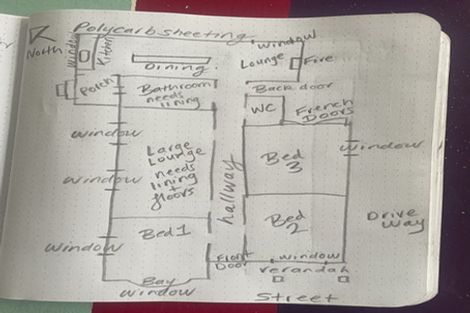 North
Polycarb sheeting.
Window
Kitchen
Window
Lounge
Fire
Dining.
Porch
Bathroom
needs
lining
Back door
WC
French
Doors
Window
Large
Lounge
needs
lining
+
floors
Window
hallway
Bed
3
Window
Window
Bed 1
Bed
2
Drive
Way
Front
Door
Window
Verandah
Bay
Window
Street